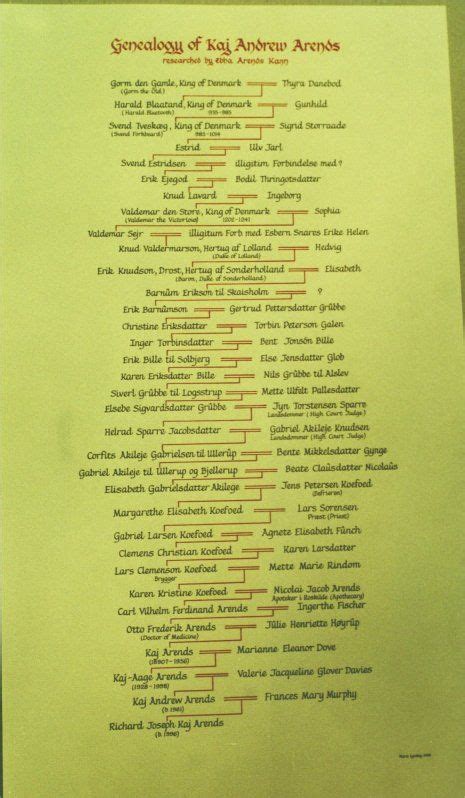 Genealogy of Kaj Andrew Arends
researched by Ebba Arends Kann
Gorm den Gamle, King of Denmark Thyra Danebod
(Gorm the Old)
Harald Blaatand, King of Denmark Gunhild
(Harald Bluetooth) 935-985
Svend Tveskæg, King of Denmark Sigrid Storraade
(Svend Forkbeard) 985-1014
Estrid Ulv Jarl
Svend Estridsen illigitim Forbindelse med ?
Erik Ejegod Bodil Thringotsdatter
Knud Lavard Ingeborg
Valdemar den Store, King of Denmark Sophia
(Valdemar the Victorious) 1202-1241
Valdemar Sejr illigitum Forb. med Esbern Snares Erike Helen
Knud Valdermarson, Hertug af Lolland Hedvig
(Duke of Lolland)
Erik Knudson, Drost, Hertug af Sonderholland Elisabeth
(Baron, Duke of Sonderholland)
Barnûm Erikson til Skaisholm ?
Erik Barnûmson Gertrud Pettersdatter Grûbbe
Christine Eriksdatter Torbin Peterson Galen
Inger Torbinsdatter Bent Jonsón Bille
Erik Bille til Solbjerg Else Jensdatter Glob
Karen Eriksdatter Bille Nils Grûbbe til Alslev
Siverl Grûbbe til Logsstrup Mette Ulfelt Pallesdatter
Elsebe Sigvardsdatter Grûbbe Jyn Torstensen Sparre
Landsdommer (High Court Judge)
Helrad Sparre Jacobsdatter Gabriel Akileje Knudsen
Landsdommer (High Court Judge)
Corfits Akileje Gabrielsen til Ullerûp Bente Mikkelsdatter Gynge
Gabriel Akileje til Ullerup og Bjellerup Beate Claûsdatter Nicolaûs
Elisabeth Gabrielsdatter Akilege Jens Petersen Koefoed
Margarethe Elisabeth Koefoed Lars Sorensen
Præst (Priest)
Gabriel Larsen Koefoed Agnete Elisabeth Fûnch
Clemens Christian Koefoed Karen Larsdatter
Lars Clemenson Koefoed Mette Marie Rindom
Brygger
Karen Kristine Koefoed Nicolai Jacob Arends
Apoteker i Roskilde (Apothecary)
Carl Vilhelm Ferdinand Arends Ingerthe Fischer
Otto Frederik Arends Jûlie Henriette Høyrûp
(Doctor of Medicine)
Kaj Arends Marianne Eleanor Dove
Kaj-Aage Arends Valerie Jacqueline Glover Davies
(1928-1998)
Kaj Andrew Arends Frances Mary Murphy
(b. 1961)
Richard Joseph Kaj Arends
(b. 1996)